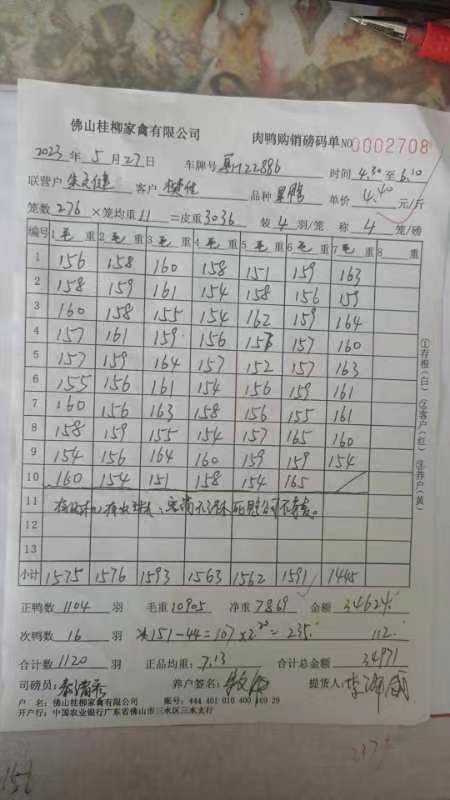 佛山桂柳家禽有限公司 肉鸭购销磅码单 NO 0002708
2023 年 5 月 27 日 车牌号 22886 时间 4.30 至 6.10
联营户 客户 品种 单价 4.40 元/斤
笼数 276 ×笼均重 11 =皮重 3036 装 4 羽/笼 称 4 笼/磅
编号 1 毛 重 2 毛 重 3 毛 重 4 毛 重 5 毛 重 6 毛 重 7 毛 重 8 重
1 156 158 160 158 151 159 163
2 158 159 161 154 158 156 159
3 160 158 155 154 162 159 164
4 157 161 159 156 157 160
5 157 159 164 157 152 157 163
6 155 156 161 154 156 159 161
7 160 156 163 158 156 155 161
8 158 159 155 154 157 165 160
9 154 156 164 160 159 159 154
10 160 154 151 158 154 165
11
12
13
小计 1575 1576 1593 1563 1562 1591 1445
正鸭数 1104 羽 毛重 10905 净重 7869 金额 34624
次鸭数 16 羽 151-44=107×2.20=235. 112.
合计数 1120 羽 正品均重: 7.13 合计总金额 34971
司磅员: 养户签名: 提货人:
户 名: 佛山桂柳家禽有限公司 账号: 444 401 010 400 169 29
开户行: 中国农业银行广东省佛山市三水区三水支行
①存根(白) ②客户(红) ③养户(黄)
156